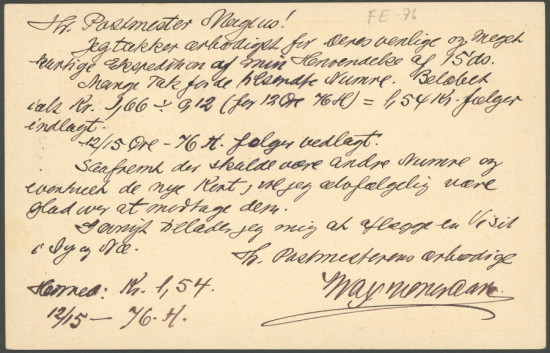 FE-76
Hr. Postmester Magnus!
Jeg takker ærbødigst for Deres venlige og meget
hurtige Ekspedition af min Henvendelse af 15 ds.
Mange Tak for de tilsendte Numre. Beløbet
ialt Kr. 1,66 ÷ 0,12 (for 12 Øre 76 H) = 1,54 Kr. følger
indlagt.
12/15 Øre - 76 H. følger vedlagt.
Saafremt der skulde være andre Numre og
eventuelt de nye Kort, vil jeg selvfølgelig være
glad over at modtage dem.
jeg mig at aflægge en Visit
i
Hr. Postmesterens ærbødige
Hermed: Kr. 1,54.
12/15 — 76. H.